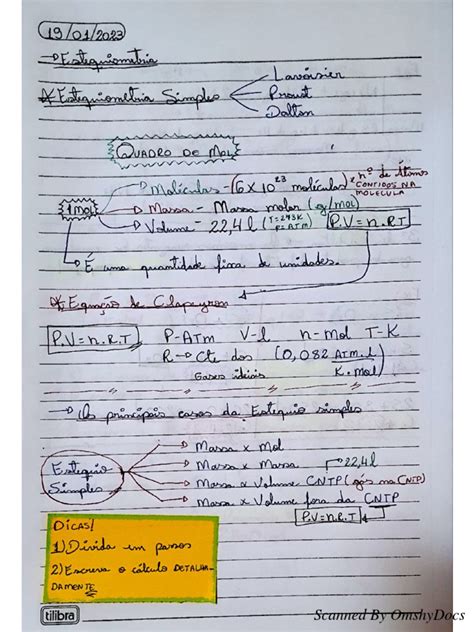 19/01/2023
→ Estequiometria
* Estequiometria Simples
Lavoisier
Proust
Dalton
QUADRO DE MOL
1 mol
→ Moléculas - (6 x 10²³ moléculas) x nº de átomos CONTIDOS NA MOLECULA
→ Massa - Massa molar (g/mol)
→ Volume - 22,4 l (T=273K P=ATM)
P.V=n.R.T
→ É uma quantidade fixa de unidades.
* Equação de Clapeyron
P.V=n.R.T P-ATM V-l n-mol T-K
R → Cte dos Gases ideiais (0,082 ATM.l / K.mol)
→ Os principais casos da Estequio simples
Estequio Simples
→ Massa x Mol
→ Massa x Massa
→ 22,4l
→ Massa x Volume CNTP (gás na CNTP)
→ Massa x Volume fora da CNTP
P.V=n.R.T
DICAS!
1) Divida em passos
2) Escreva o cálculo DETALHA-
DAMENTE
tilibra
Scanned By OmshyDocs